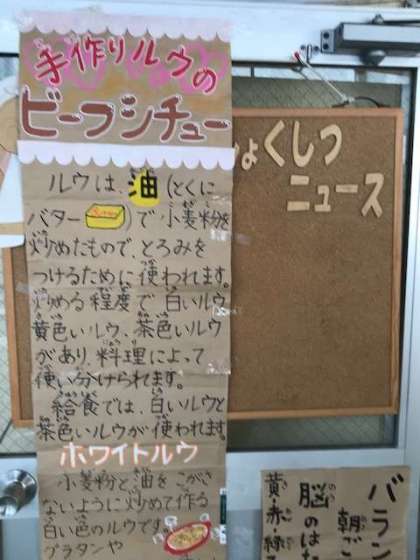 手作りルウの
ビーフシチュー
ルウは、油(とくに
バター)で小麦粉を
炒めたもので、とろみを
つけるために使われます。
炒める程度で白いルウ
黄色いルウ、茶色いルウ
があり、料理によって
使い分けられます。
給食では、白いルウと
茶色いルウが使われます。
ホワイトルウ
小麦粉と油をこがさ
ないように炒めて作る
白い色のルウです。
グラタンや
ょくしつ
ニュース
バラン
朝で
脳のはた
黄・赤・緑